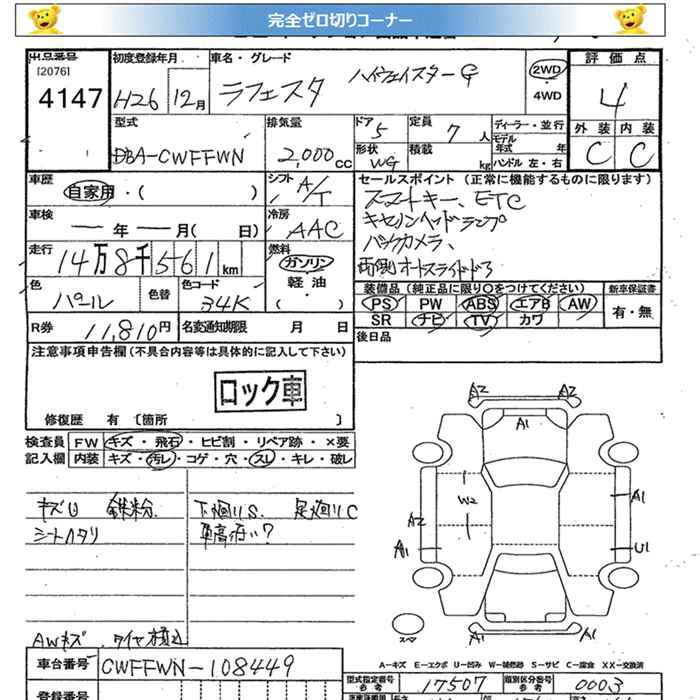 完全ゼロ切りコーナー
出品番号 初度登録年月 車名・グレード 評価点
[2076] ハイウェイスターG 2WD
4147 H26 12月 ラフェスタ ・4WD 4
外装 内装
型式 排気量 ドア 5 定員 7人 ディーラー・並行 C C
DBA-CWFFWN 2,000cc 形状 WG 積載 kg モデル年式 年 ハンドル 左・右
車歴 シフト A/T セールスポイント (正常に機能するものに限ります)
自家用・( ) スマートキー、ETC
車検 冷房 キセノンヘッドランプ
年 月( 日) AAC バックカメラ、
走行 燃料 両側オートスライドドア
14万8千561km ガソリン
色 色替 色コード 軽油 装備品 (純正品に限り○をつけてください) 新車保証書
パール 34K ・( ) PS PW ABS エアB AW 有・無
R券 11,810円 名変通知期限 月 日 SR ナビ TV カワ
注意事項申告欄(不具合内容等は具体的に記入して下さい) 後日品
ロック車
修復歴 有 〔箇所 〕
検査員 FW キズ・飛石・ヒビ割・リペア跡・×要
記入欄 内装 キズ・汚レ・コゲ・穴・スレ・キレ・破レ
A2 A2
A1
キズU 鉄粉 下廻りS 足廻りC
シートヘタリ 車高浮い?
W2 A1
A2
A1 U1
スペア
A1 A1
AWキズ タイヤ積込
A-キズ E-エクボ U-凹み W-補修跡 S-サビ C-腐食 XX-交換済
車台番号 CWFFWN-108449
型式指定番号 参考 17507 類別区分番号 参考 0003
登録番号